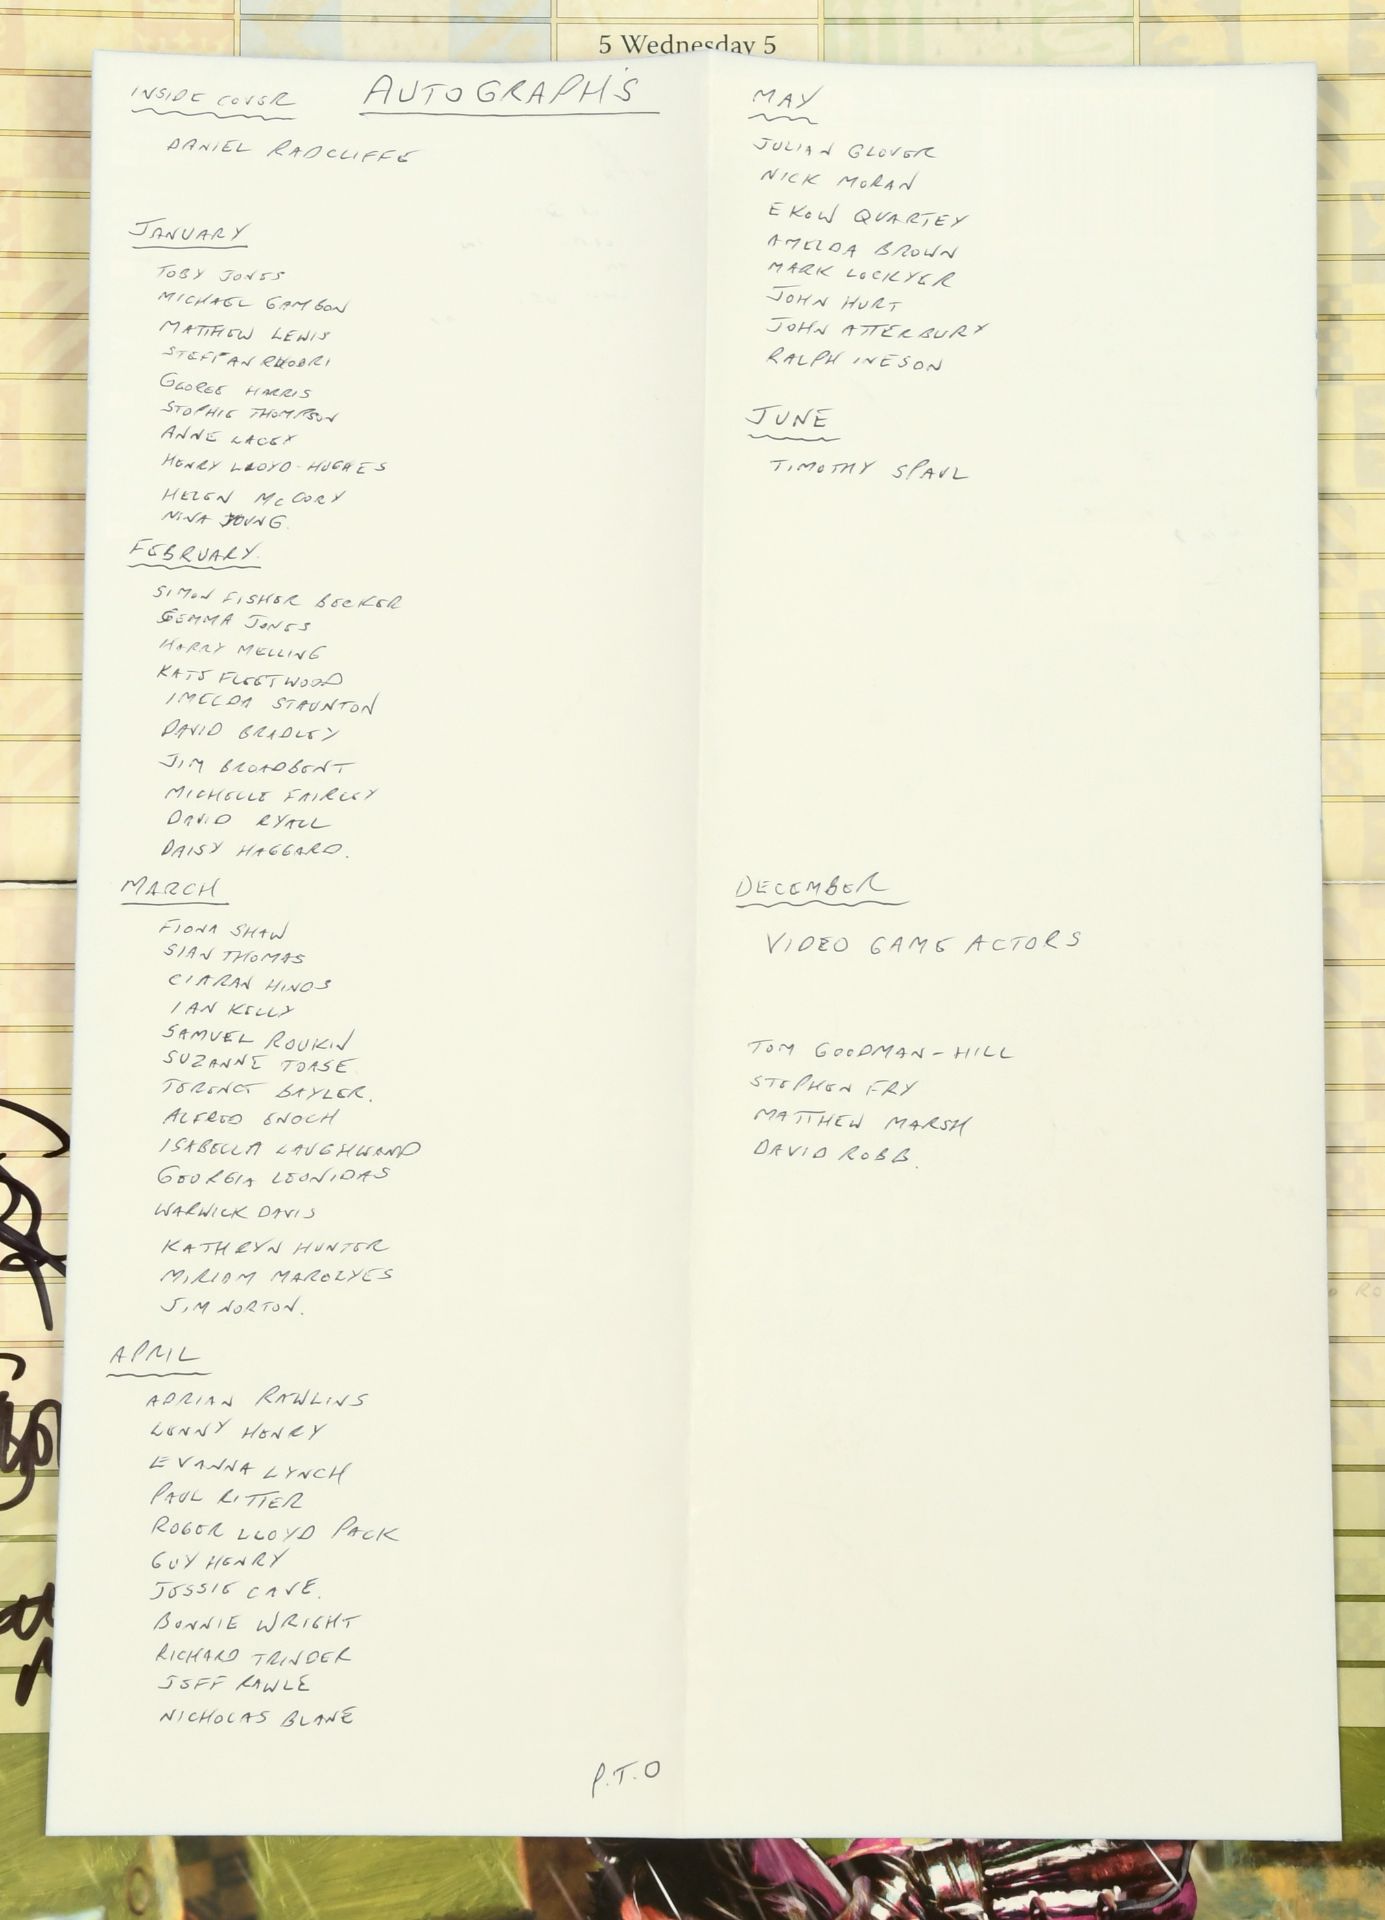 5 Wednesday 5
AUTOGRAPH'S
INSIDE COVER
DANIEL RADCLIFFE
JANUARY
TOBY JONES
MICHAEL GAMBON
MATTHEW LEWIS
STEFFAN RHODRI
GEORGE HARRIS
STOPHIE THOMPSON
ANNE LACEY
HENRY LLOYD-HUGHES
HELEN McCORY
NINA YOUNG.
FEBRUARY.
SIMON FISHER BECKER
GEMMA JONES
HARRY MELLING
KATE FLEETWOOD
IMELDA STAUNTON
DAVID BRADLEY
JIM BROADBENT
MICHELLE FAIRLEY
DAVID RYALL
DAISY HAGGARD.
MARCH
FIONA SHAW
SIAN THOMAS
CIARAN HINDS
IAN KELLY
SAMUEL ROUKIN
SUZANNE TOASE
TERENCE BAYLER.
ALFRED ENOCH
ISABELLA LAUGHWAND
GEORGIA LEONIDAS
WARWICK DAVIS
KATHRYN HUNTER
MIRIAM MAROLYES
JIM NORTON.
APRIL
ADRIAN RAWLINS
LENNY HENRY
EVANNA LYNCH
PAUL RITTER
ROGER LLOYD PACK
GUY HENRY
JESSIE CAVE.
BONNIE WRIGHT
RICHARD TRINDER
JEFF RAWLE
NICHOLAS BLANE
P.T.O
MAY
JULIAN GLOVER
NICK MORAN
EKOW QUARTEY
AMELDA BROWN
MARK LOCKYER
JOHN HURT
JOHN ATTERBURY
RALPH INESON
JUNE
TIMOTHY SPAUL
DECEMBER
VIDEO GAME ACTORS
TOM GOODMAN-HILL
STEPHEN FRY
MATTHEW MARSH
DAVID ROBB.